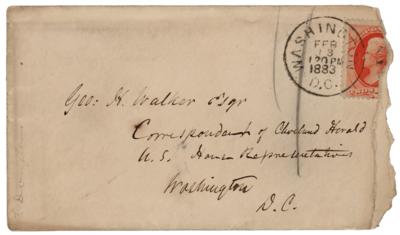 WASHINGTON
FEB
13
1 30 PM
1883
D.C.
Geo: H. Walker Esqr
Correspondent of Cleveland Herald
U.S. House Representatives
Washington
D.C.